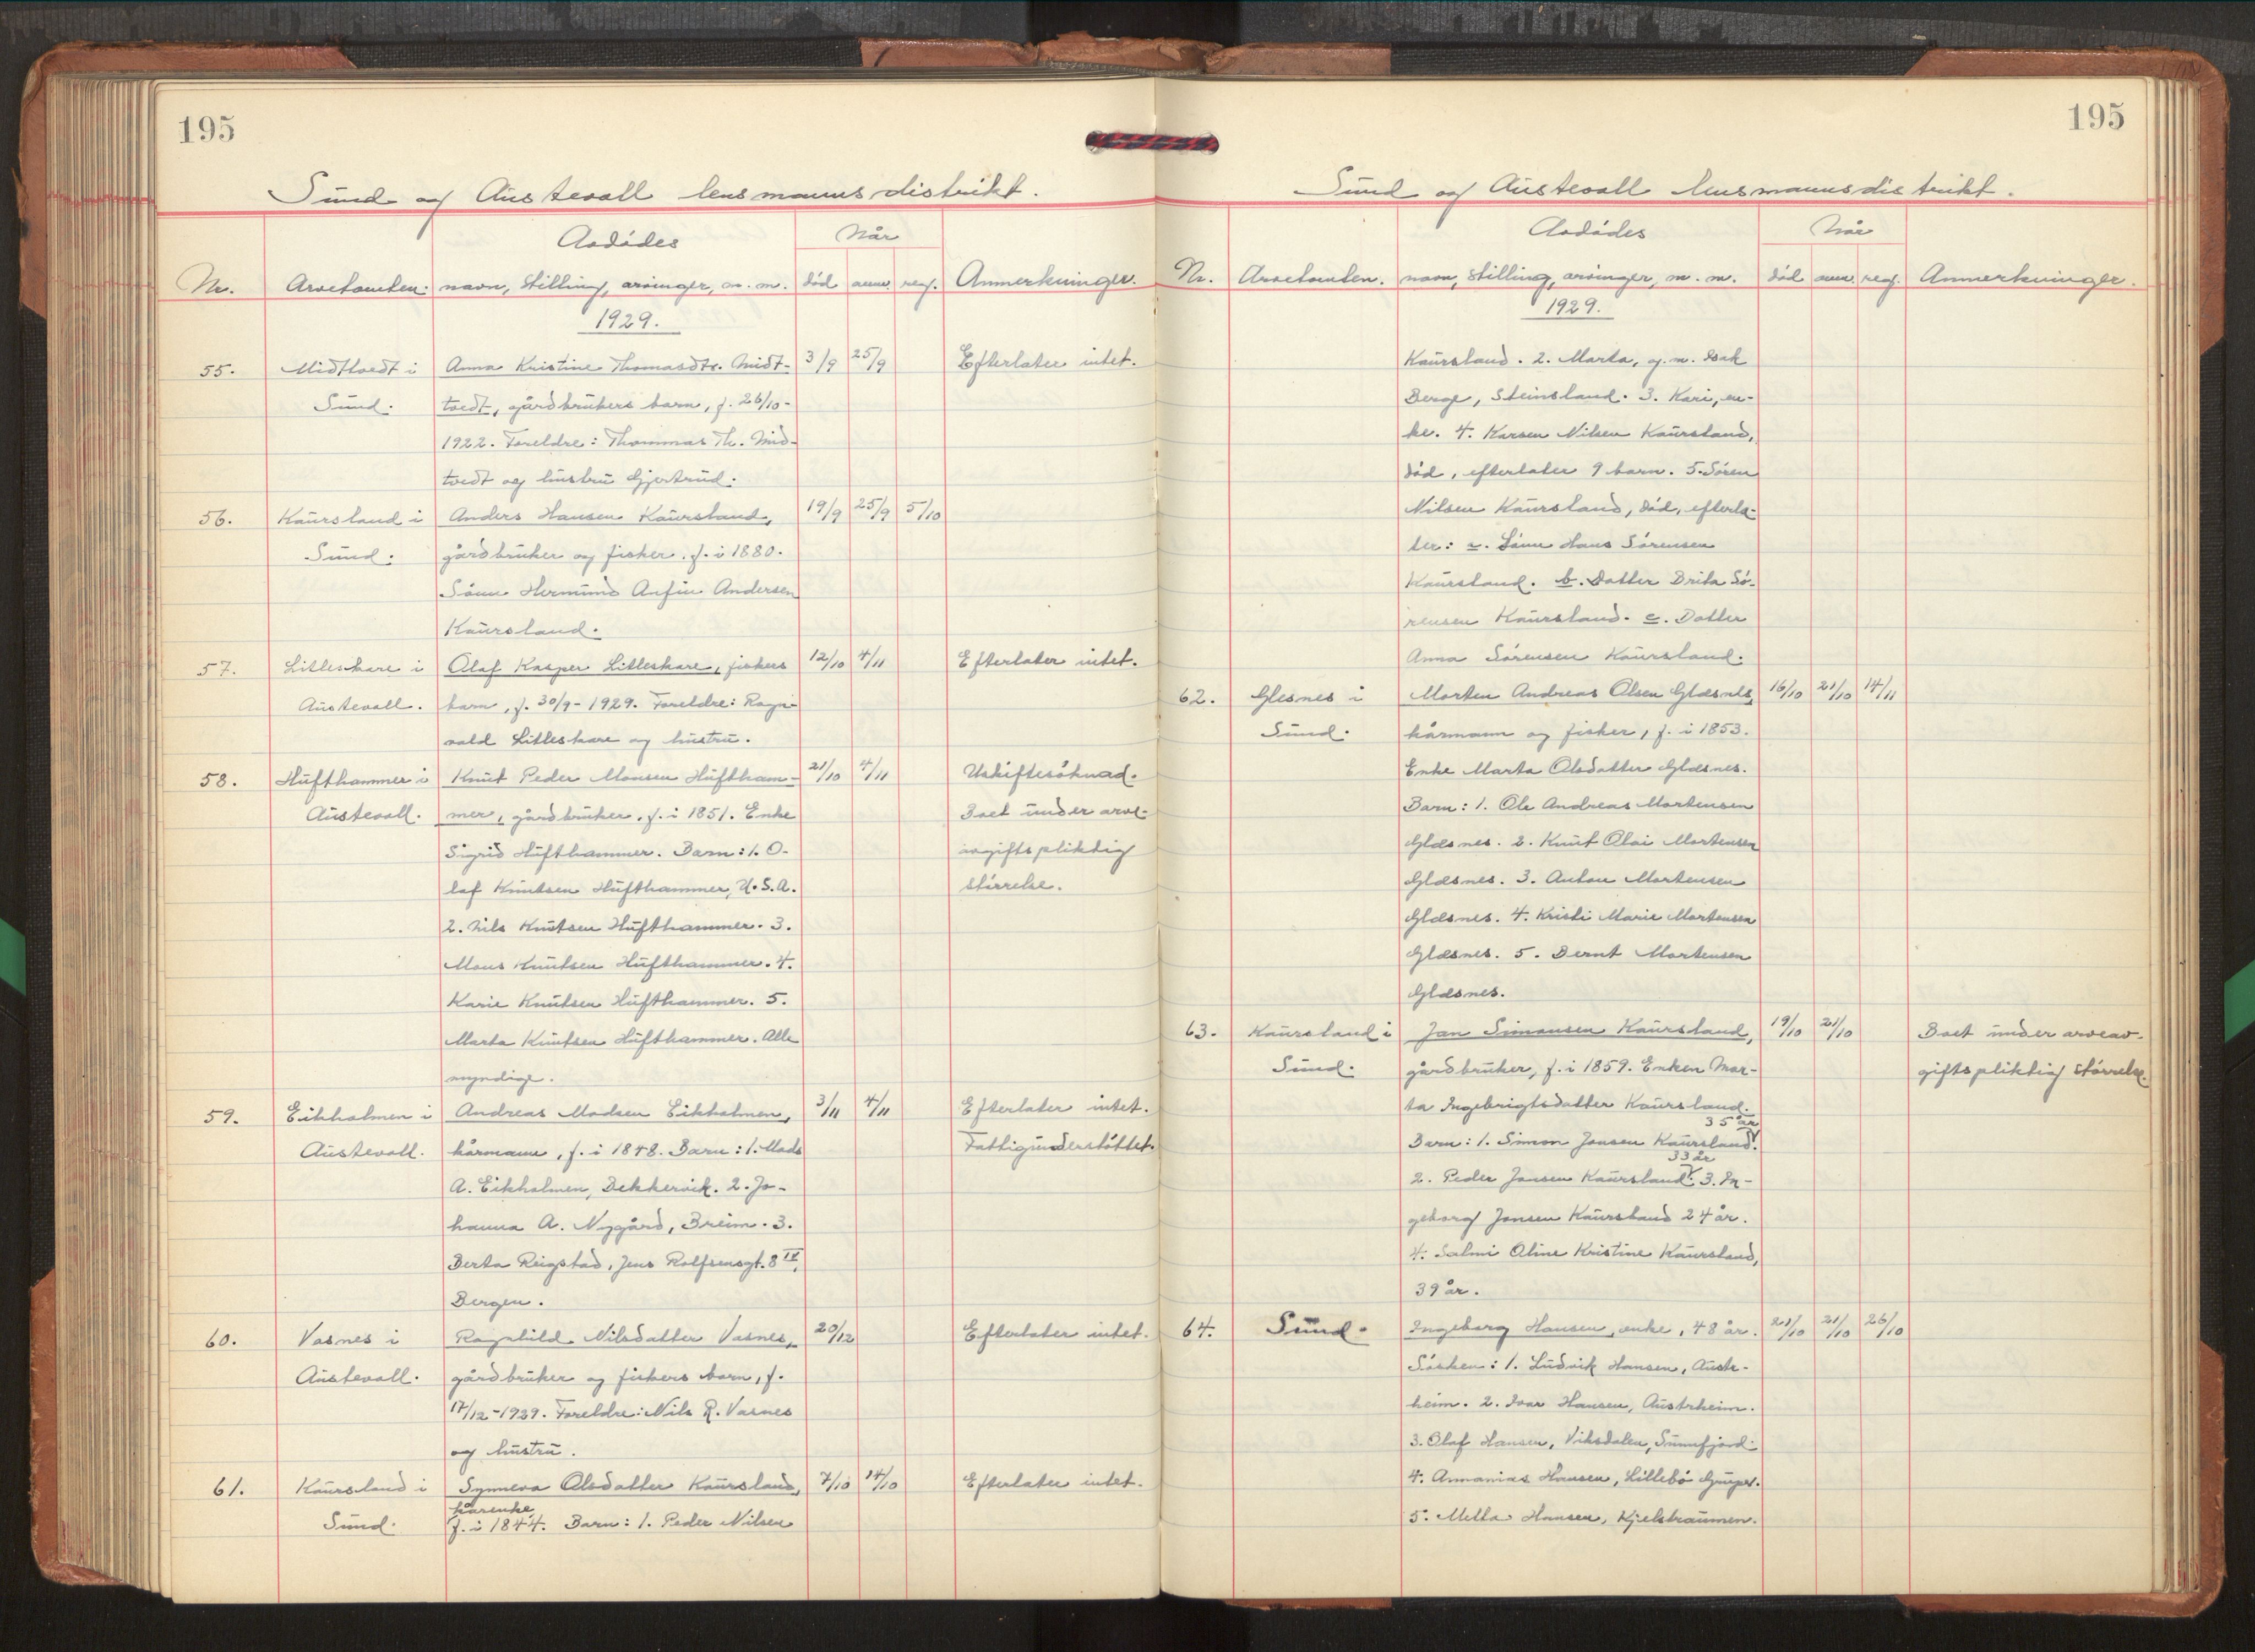 195
Sund og Austevoll lensmannsdistrikt.
Avdødes Når
Nr. Arvetomten. navn, stilling, arvinger, m. m. død anm. reg. Anmerkninger.
1929.
55. Midttvedt i Anna Kristine Thomasdtr. Midt- 3/9 25/9 Efterlater intet.
Sund. tvedt, gårdbrukers barn, f. 26/10-
1922. Foreldre: Thommas Th. Mid-
tvedt og hustru Gjertrud.
56. Kaursland i Anders Hansen Kaursland, 19/9 25/9 5/10
Sund. gårdbruker og fisker. f. i 1880.
Sønn Hermund Anfin Andersen
Kaursland.
57. Litleskare i Olaf Kasper Litleskare, fiskers 12/10 4/11 Efterlater intet.
Austevoll. barn, f. 30/9-1929. Foreldre: Ragn-
vald Litleskare og hustru.
58. Hufthammer i Knut Peder Monsen Huftham- 21/10 4/11 Uskiftesøknad.
Austevoll. mer, gårdbruker, f. i 1851. Enke Boet under arve-
Sigrid Hufthammer. Barn: 1. O- avgiftspliktig
laf Knutsen Hufthammer, U.S.A. størrelse.
2. Nils Knutsen Hufthammer. 3.
Mons Knutsen Hufthammer. 4.
Karie Knutsen Hufthammer. 5.
Marta Knutsen Hufthammer. Alle
myndige.
59. Eikholmen i Andreas Madsen Eikholmen, 3/11 4/11 Efterlater intet.
Austevoll. kårmann, f. i 1848. Barn: 1. Mads Fattigunderstøttet.
A. Eikholmen, Bekkervik. 2. Jo-
hanna A. Nygård, Breim. 3.
Berta Reigstad, Jens Rolfsensgt. 8 IV,
Bergen.
60. Vasnes i Ragnhild Nilsdatter Vasnes, 20/12 Efterlater intet.
Austevoll. gårdbruker og fiskers barn, f.
17/12-1929. Foreldre: Nils R. Vasnes
og hustru.
61. Kaursland i Synneva Olsdatter Kaursland, 7/10 14/10 Efterlater intet.
kårenke,
Sund. f. i 1844. Barn: 1. Peder Nilsen
195
Sund og Austevoll lensmannsdistrikt.
Avdødes Når
Nr. Arvetomten. navn, stilling, arvinger, m. m. død anm. reg. Anmerkninger.
1929.
Kaursland. 2. Marta, g. m. Isak
Berge, Steinsland. 3. Kari, en-
ke. 4. Karsen Nilsen Kaursland,
død, efterlater 9 barn. 5. Søren
Nilsen Kaursland, død, efterla-
ter: a. Sønn Hans Sørensen
Kaursland. b. Datter Brita Sø-
rensen Kaursland. c. Datter
Anna Sørensen Kaursland.
62. Glesnes i Morten Andreas Olsen Glæsnes, 16/10 21/10 14/11
Sund. kårmann og fisker, f. i 1853.
Enke Marta Olsdatter Glæsnes.
Barn: 1. Ole Andreas Mortensen
Glæsnes. 2. Knut Olai Mortensen
Glæsnes. 3. Anton Mortensen
Glæsnes. 4. Kristi Marie Mortensen
Glæsnes. 5. Bernt Mortensen
Glæsnes.
63. Kaursland i Jan Simonsen Kaursland, 19/10 21/10 Boet under arveav-
Sund. gårdbruker, f. i 1859. Enken Mar- giftspliktig størrelse.
ta Ingebrigtsdatter Kaursland.
35 år
Barn: 1. Simon Jansen Kaursland.
33 år
2. Peder Jansen Kaursland. 3. In-
geborg Jansen Kaursland 24 år.
4. Salmi Oline Kristine Kaursland,
39 år.
64. Sund. Ingeborg Hansen, enke, 48 år. 21/10 21/10 26/10
Søsken: 1. Ludvik Hansen, Austr-
heim. 2. Ivar Hansen, Austrheim.
3. Olaf Hansen, Viksdalen, Sunnfjord.
4. Annanias Hansen, Lillebø Gruper.
5. Metta Hansen, Kjelstraumen.